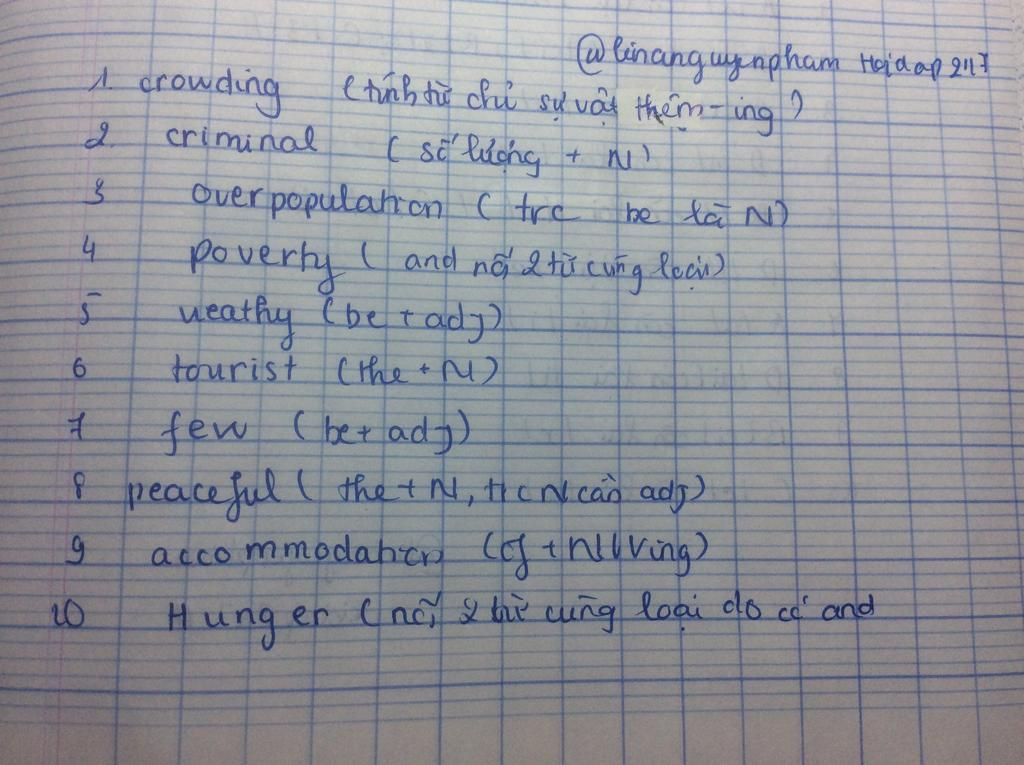 @linanguyenpham Hoidap247
1. crowding (tính từ chỉ sự vật thêm -ing)
2. criminal (số lượng + N)
3 overpopulation (trc be là N)
4 poverty (and nối 2 từ cùng loại)
5 weathy (be + adj)
6 tourist (the + N)
7 few (be + adj)
8 peaceful (the + N, trc N cần adj)
9 accommodation (of + N/Ving)
10 Hunger (nối 2 từ cùng loại do có and